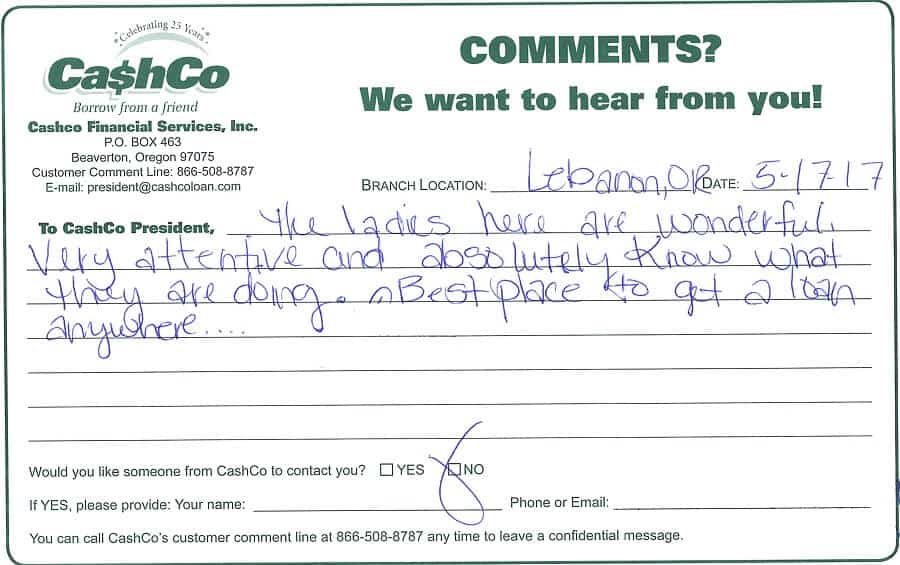 *Celebrating 25 Years*
Ca$hCo
Borrow from a friend
Cashco Financial Services, Inc.
P.O. BOX 463
Beaverton, Oregon 97075
Customer Comment Line: 866-508-8787
E-mail: president@cashcoloan.com
COMMENTS?
We want to hear from you!
BRANCH LOCATION: Lebanon, OR DATE: 5-17-17
To CashCo President, The ladies here are wonderful,
Very attentive and absolutely know what
they are doing. Best place to get a loan
anywhere....
Would you like someone from CashCo to contact you? ☐ YES ☒ NO
If YES, please provide: Your name: Phone or Email:
You can call CashCo's customer comment line at 866-508-8787 any time to leave a confidential message.